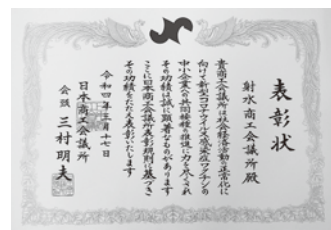 表彰状
射水商工会議所殿
貴商工会議所は社会経済活動の正常化に
向けて新型コロナウイルス感染症ワクチンの
中小企業への共同接種の推進に力を尽くされ
その功績は誠に顕著なものがあります
ここに日本商工会議所表彰規則に基づき
その功績をたたえ表彰いたします
令和四年三月十七日
日本商工会議所
会頭 三村明夫